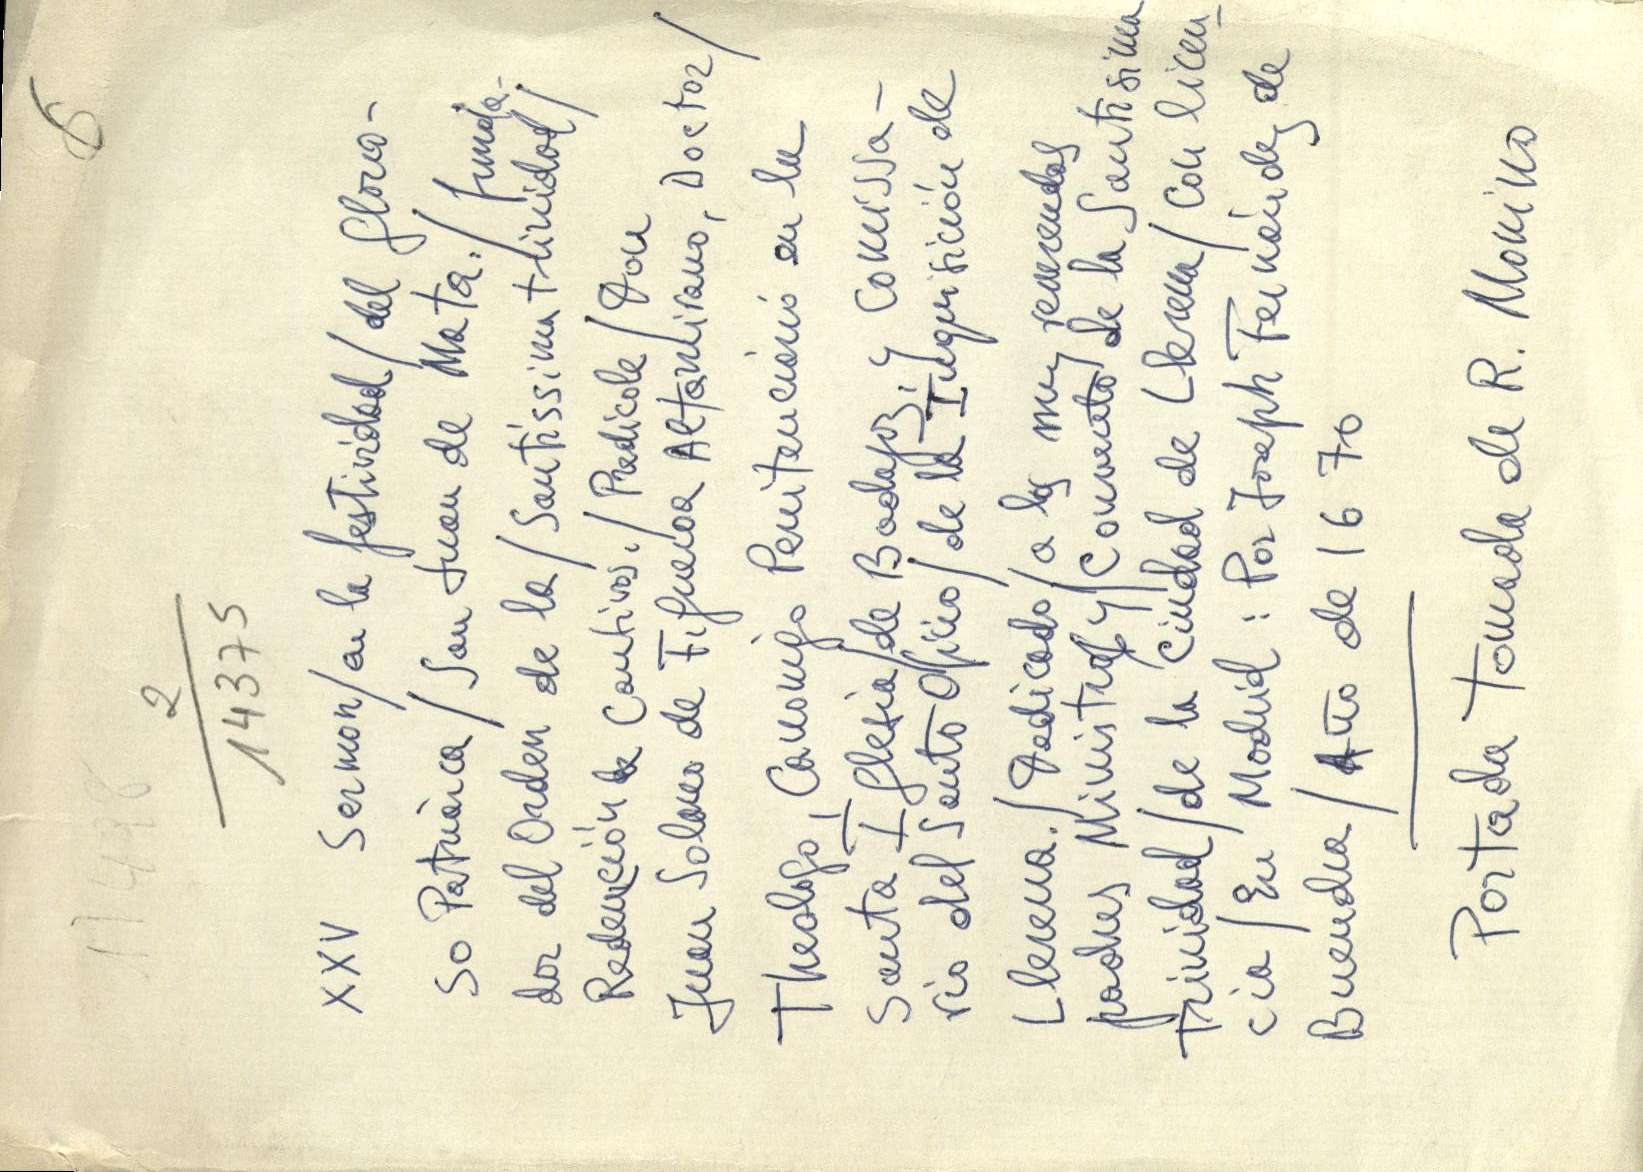 6
11478
2
14375
XXV Sermon/en la festividad/del glorio-
so Patriarca/San Juan de Mata./funda-
dor del Orden de la/Santissima trinidad/
Redención de Cautivos./Predicole/Don
Juan Solano de Figueroa Altamirano, Doctor/
Theologo, Canonigo Penitenciario en la
Santa Iglesia/de Badajoz, y Comissa-
rio del Santo Oficio/de la Inquisición de
Llerena./Dedicado/a los muy reverendos
padres Ministros y/Convento de la Santissima
trinidad/de la Ciudad de Llerena/Con licen-
cia/En Madrid: Por Joseph Fernández de
Buendia/Año de 1670
Portada tomada de R. Moñino